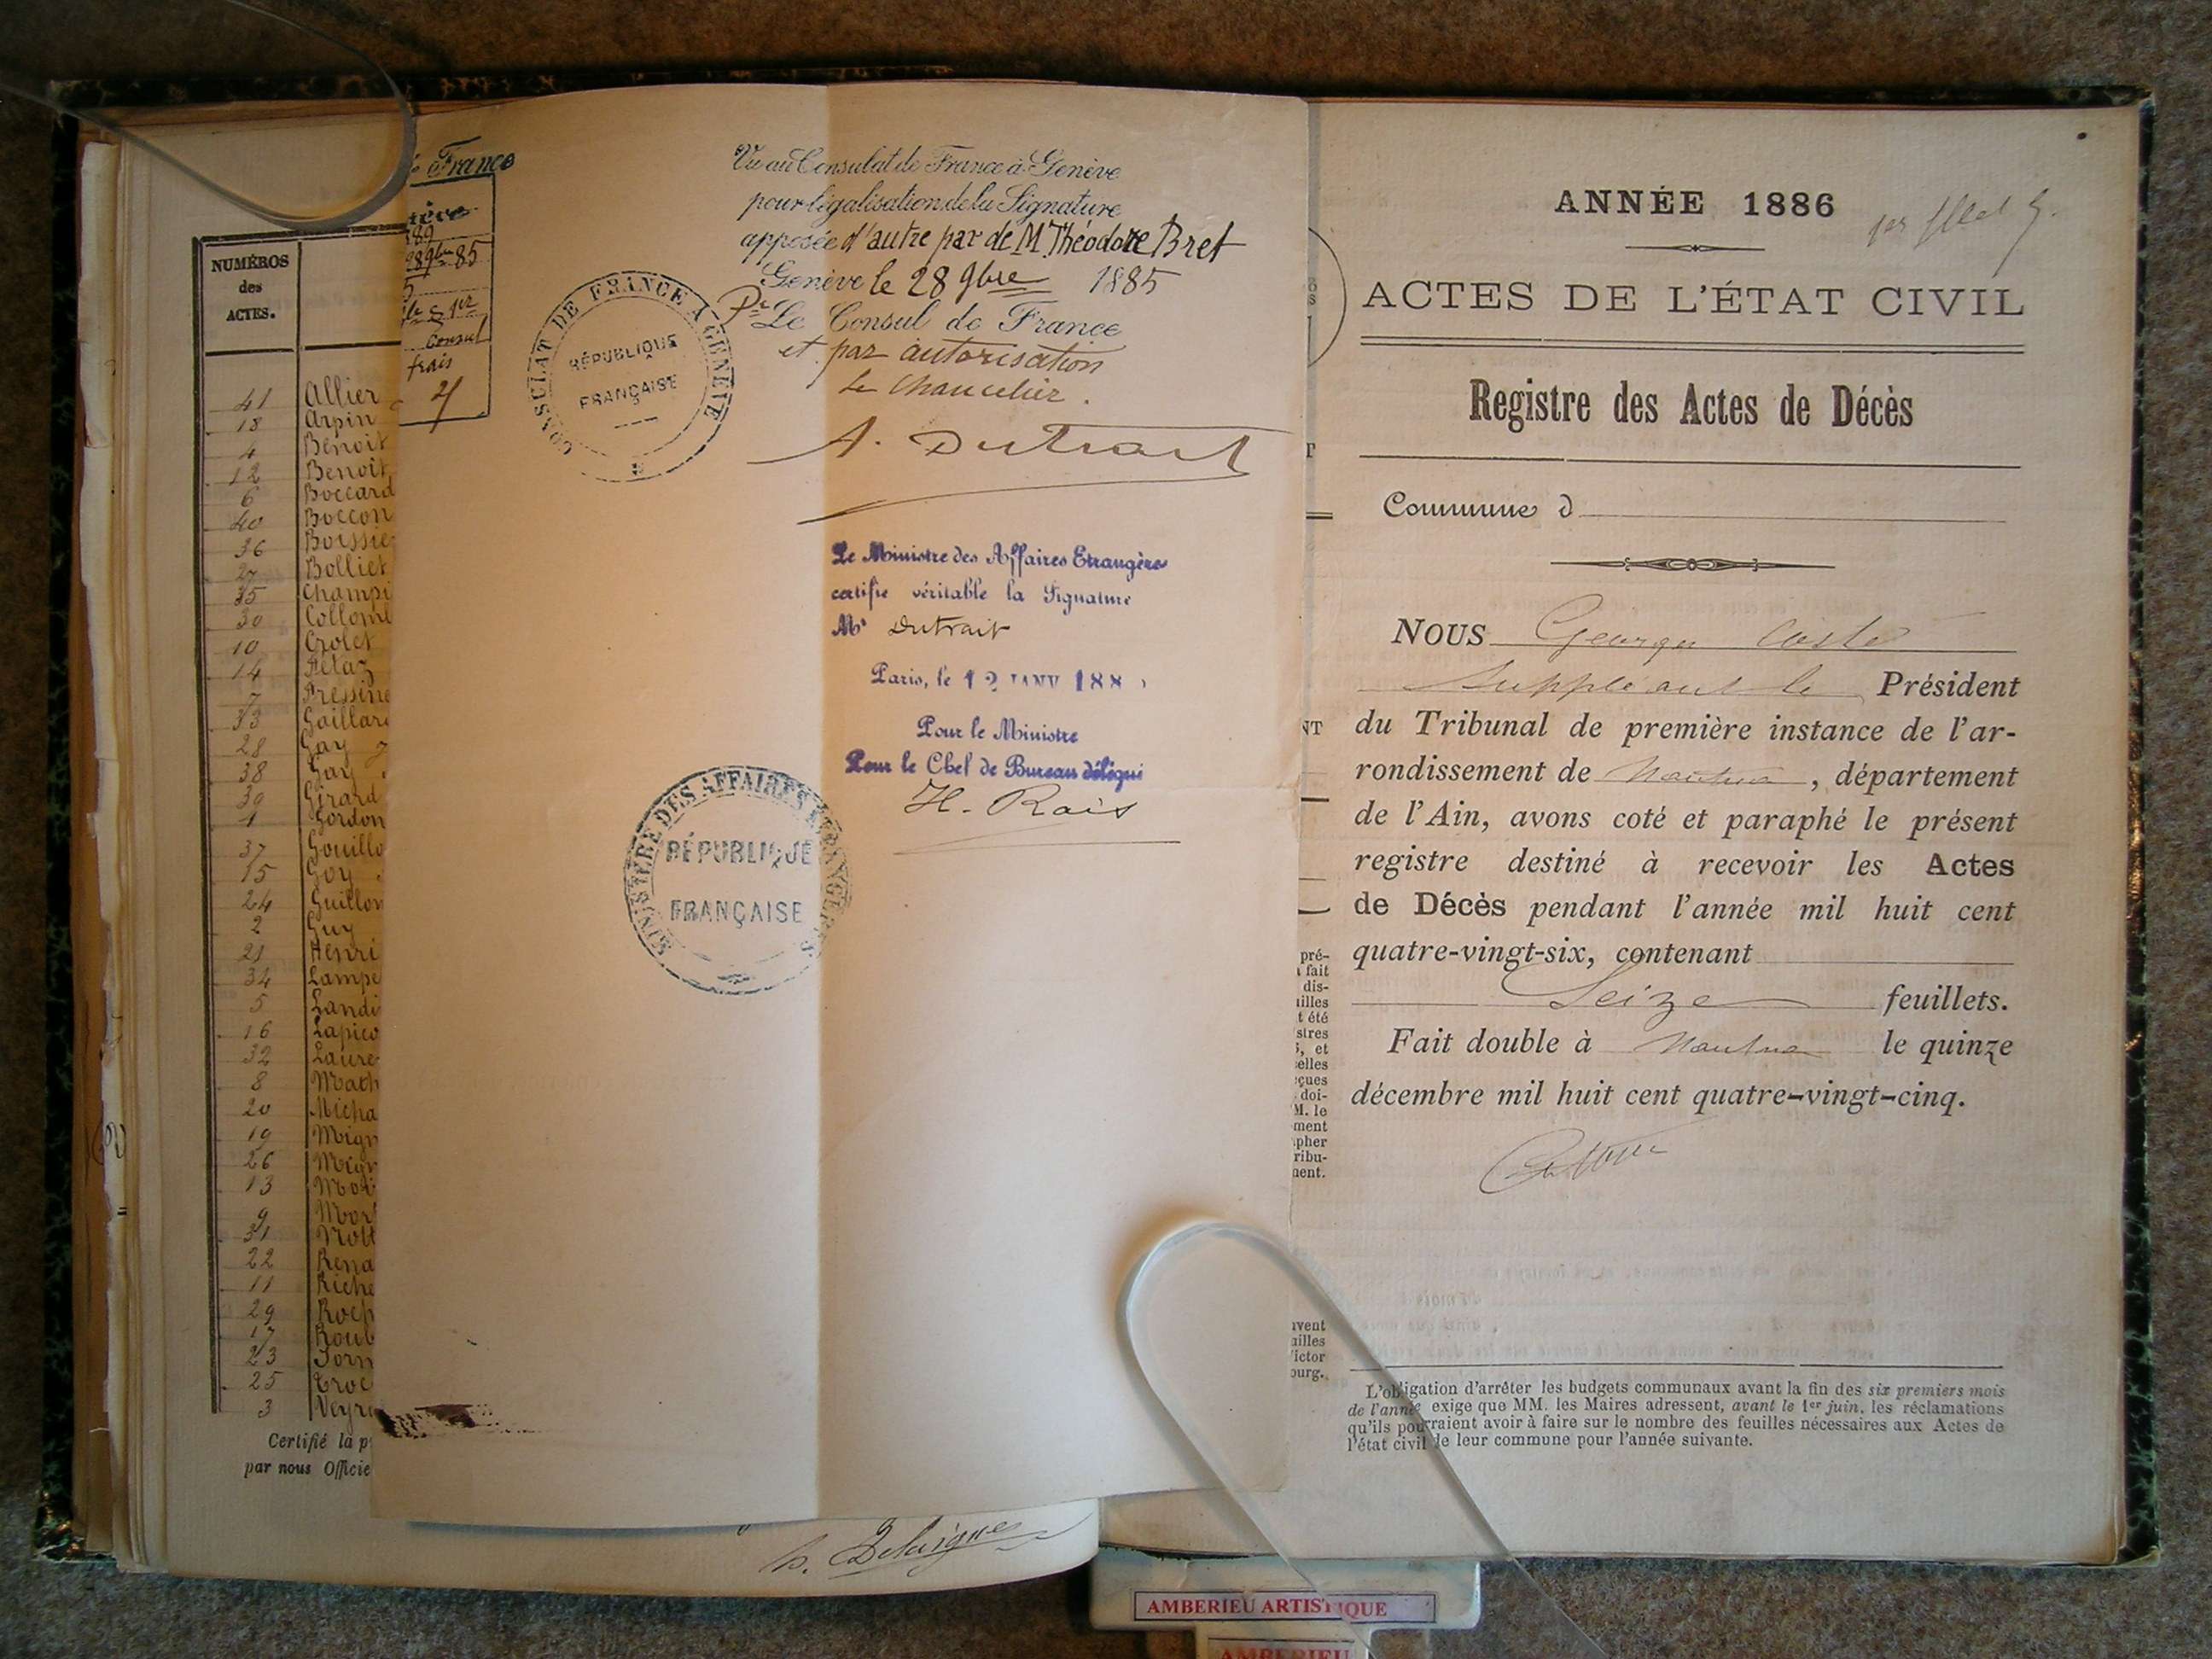 NUMÉROS
des
ACTES.
41 Allier
18 Arpin
4 Benoit
12 Benoit
6 Boccard
40 Boccon
36 Boissie
27 Bolliet
35 Champi
30 Collomb
10 Crolet
14 Fétaz
7 Fressine
33 Gaillard
28 Gay
38 Gay
39 Girard
1 Gordon
37 Gouillo
15 Goy
24 Guillon
2 Guy
21 Henri
34 Lampe
5 Landi
16 Lapico
32 Laure
8 Math
20 Micha
19 Mign
26 Mign
13
9 Mor
31
22 Rena
11 Riche
29 Roch
17 Roub
23 Torn
25 Troc
3 Veyr
Certifié la p
par nous Officie
France
Consul
frais
Vu au Consulat de France à Genève
pour légalisation de la Signature
apposée d'autre par de M. Théodore Bret
Genève le 28 9bre 1885
Pr Le Consul de France
et par autorisation
Le Chancelier.
A. Dutrait
CONSULAT DE FRANCE A GENÈVE
RÉPUBLIQUE
FRANÇAISE
Le Ministre des Affaires Etrangères
certifie véritable la Signature
Mr Dutrait
Paris, le 12 JANV 188
Pour le Ministre
Pour le Chef de Bureau délégué
H. Rais
MINISTÈRE DES AFFAIRES ETRANGÈRES
RÉPUBLIQUE
FRANÇAISE
NT
pré-
fait
dis-
illes
t été
stres
, et
elles
çues
doi-
M. le
ment
pher
ribu-
nent.
vent
illes
ictor
ourg.
ANNÉE 1886
ACTES DE L'ÉTAT CIVIL
Registre des Actes de Décès
Commune d
NOUS Georges Coste
Suppléant le Président
du Tribunal de première instance de l'ar-
rondissement de Nantua, département
de l'Ain, avons coté et paraphé le présent
registre destiné à recevoir les Actes
de Décès pendant l'année mil huit cent
quatre-vingt-six, contenant
Seize feuillets.
Fait double à Nantua le quinze
décembre mil huit cent quatre-vingt-cinq.
L'obligation d'arrêter les budgets communaux avant la fin des six premiers mois
de l'année exige que MM. les Maires adressent, avant le 1er juin, les réclamations
qu'ils pourraient avoir à faire sur le nombre des feuilles nécessaires aux Actes de
l'état civil de leur commune pour l'année suivante.
AMBERIEU ARTISTIQUE
AMBERIEU